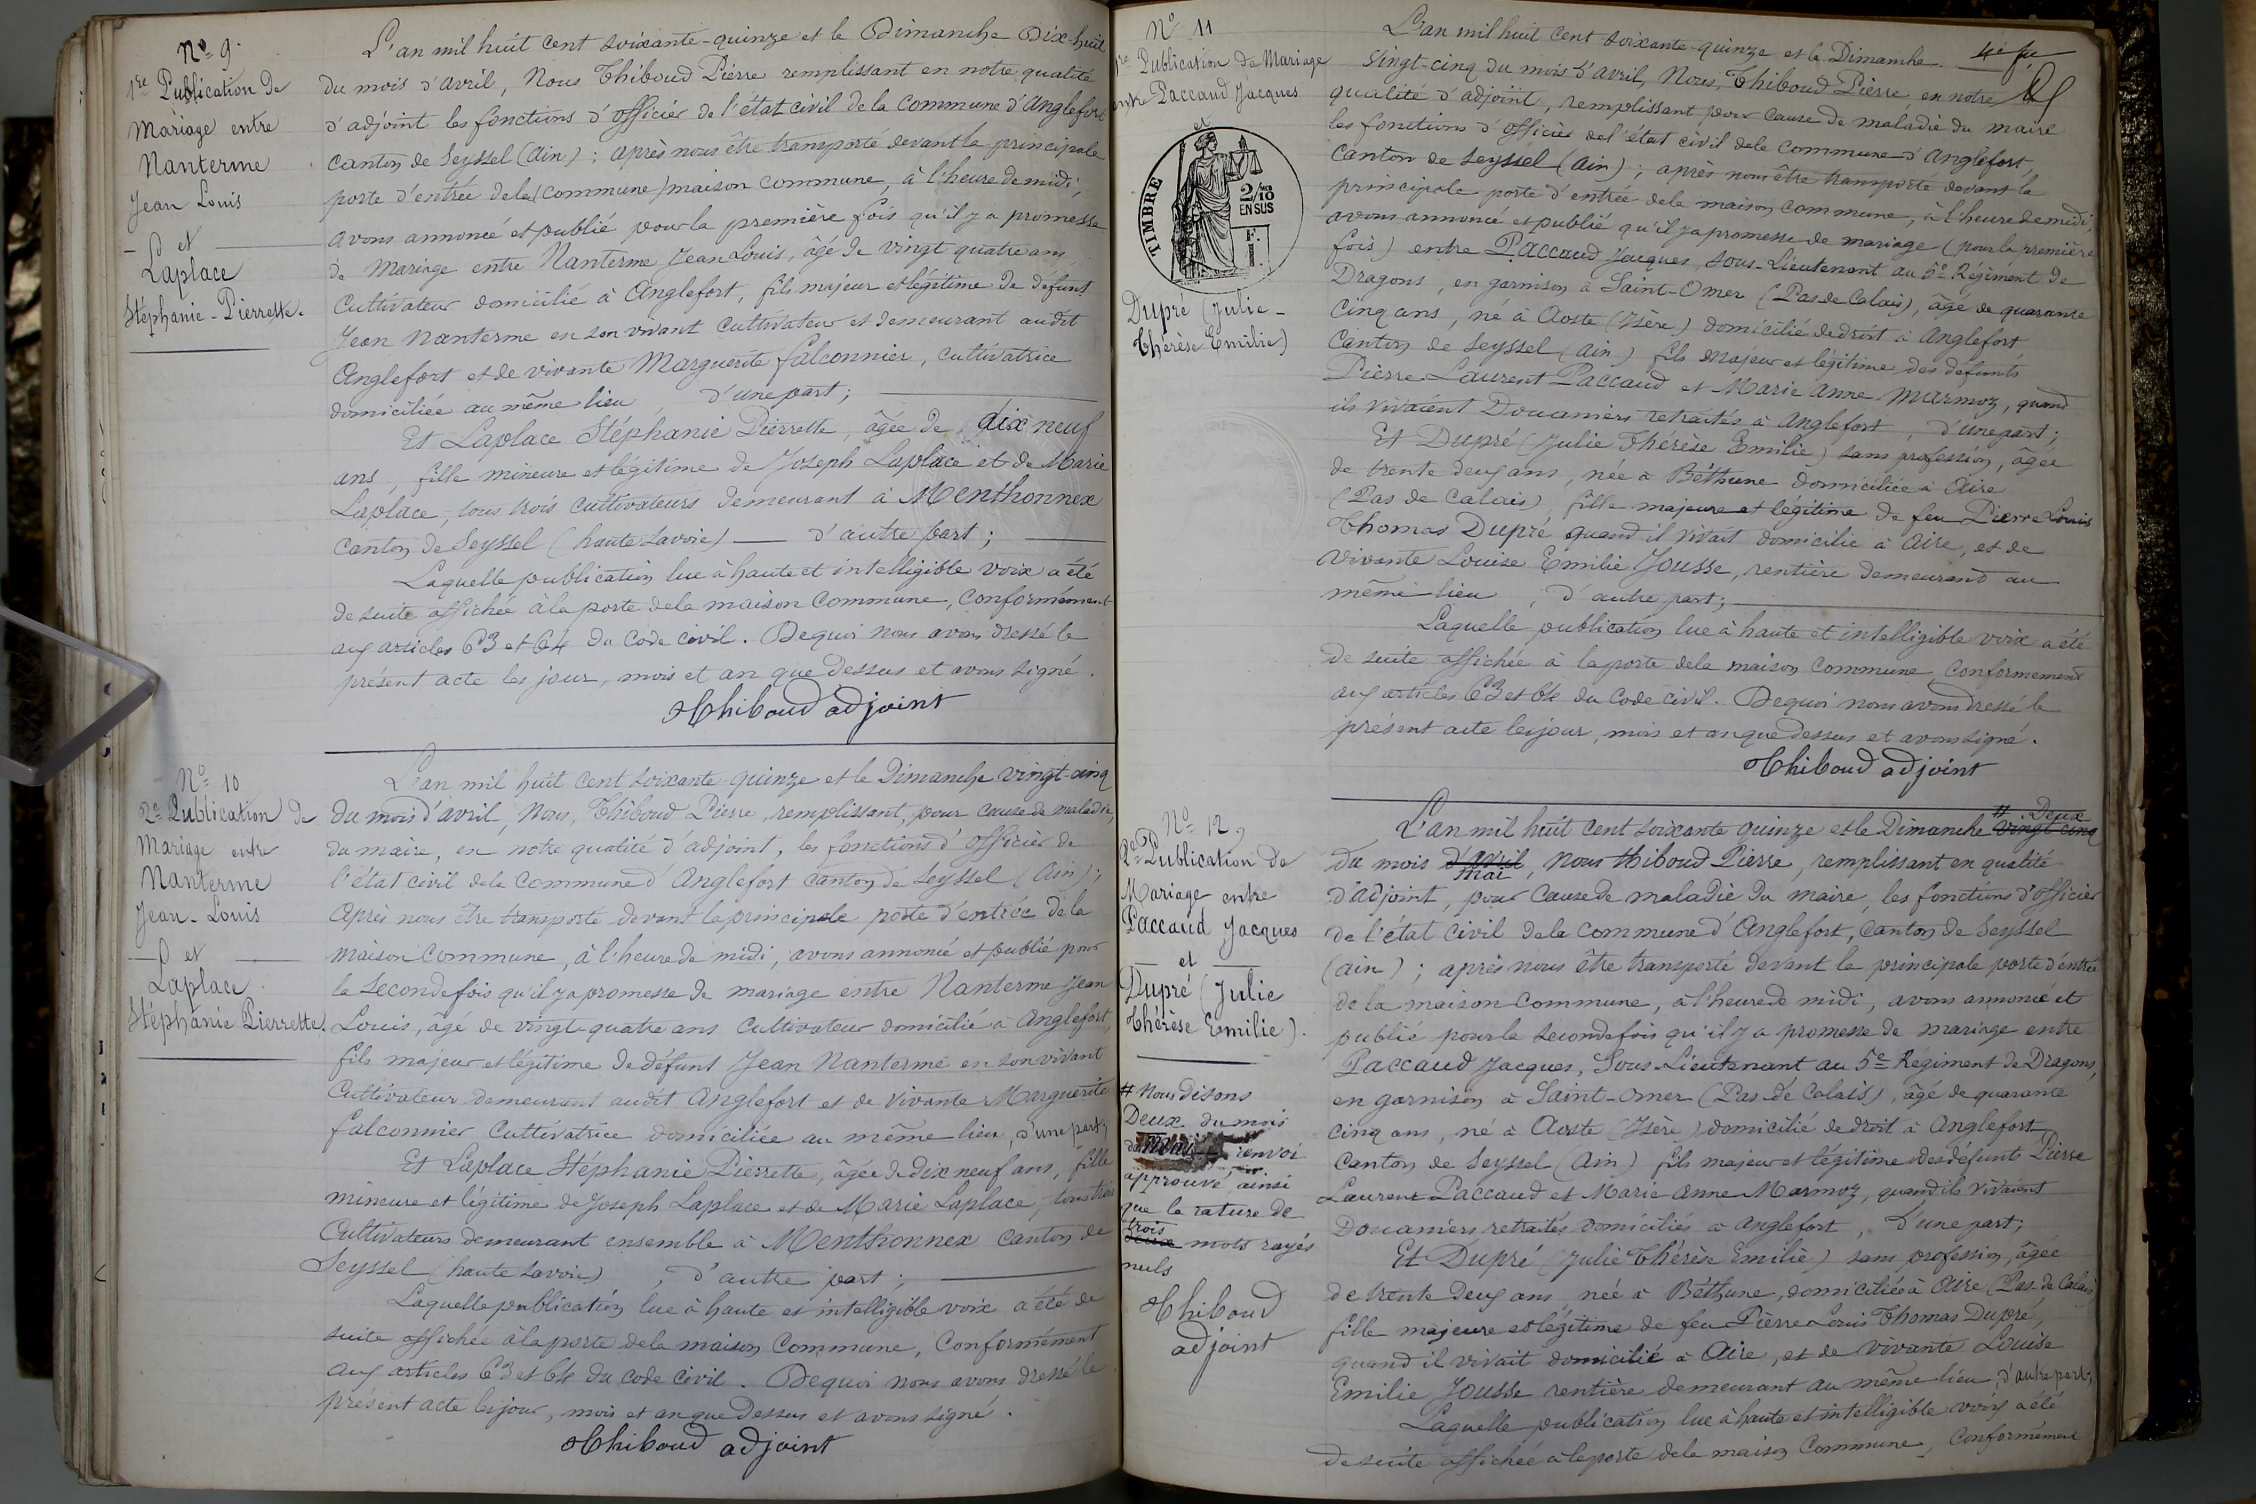 No 9.
1re Publication de
Mariage entre
Nanterme
Jean Louis
et
Laplace
Stéphanie-Pierrette.
L'an mil huit cent soixante-quinze et le Dimanche Dix-huit
du mois d'avril, Nous Thiboud Pierre remplissant en notre qualité
d'adjoint les fonctions d'officier de l'état civil de la Commune d'Anglefort
Canton de Seyssel (Ain) ; après nous être transporté devant la principale
porte d'entrée de la (commune) maison commune, à l'heure de midi,
avons annoncé et publié pour la première fois qu'il y a promesse
de Mariage entre Nanterme Jean Louis, âgé de vingt quatre ans
Cultivateur domicilié à Anglefort, fils majeur et légitime de défunt
Jean Nanterme en son vivant Cultivateur et demeurant audit
Anglefort et de vivante Marguerite Falconnier, cultivatrice
domiciliée au même lieu d'une part ;
Et Laplace Stéphanie Pierrette, âgée de dix neuf
ans, fille mineure et légitime de Joseph Laplace et de Marie
Laplace, tous trois cultivateurs demeurant à Menthonnex
Canton de Seyssel (haute Savoie) — d'autre part ;
Laquelle publication lue à haute et intelligible voix a été
de suite affichée à la porte de la maison Commune, Conformément
aux articles 63 et 64 du Code civil. De quoi nous avons dressé le
présent acte les jour, mois et an que dessus et avons signé.
Thiboud adjoint
No 10
2e Publication de
Mariage entre
Nanterme
Jean-Louis
et
Laplace
Stéphanie Pierrette
L'an mil huit cent soixante-quinze et le Dimanche vingt-cinq
du mois d'avril, Nous, Thiboud Pierre, remplissant, pour cause de maladie
du maire, en notre qualité d'adjoint, les fonctions d'officier de
l'état civil de la Commune d'Anglefort Canton de Seyssel (Ain) ;
Après nous être transporté devant la principale porte d'entrée de la
maison Commune, à l'heure de midi, avons annoncé et publié pour
la seconde fois qu'il y a promesse de mariage entre Nanterme Jean
Louis, âgé de vingt-quatre ans Cultivateur domicilié à Anglefort,
fils majeur et légitime de défunt Jean Nanterme en son vivant
Cultivateur demeurant audit Anglefort et de vivante Marguerite
Falconnier Cultivatrice domiciliée au même lieu, d'une part ;
Et Laplace Stéphanie Pierrette, âgée de dix neuf ans, fille
mineure et légitime de Joseph Laplace et de Marie Laplace, tous trois
Cultivateurs demeurant ensemble à Menthonnex Canton de
Seyssel (haute Savoie), d'autre part ;
Laquelle publication lue à haute et intelligible voix a été de
suite affichée à la porte de la maison Commune, Conformément
aux articles 63 et 64 du Code civil. De quoi nous avons dressé le
présent acte les jour, mois et an que dessus et avons signé.
Thiboud adjoint
No 11
1re Publication de Mariage
entre Paccaud Jacques
et
TIMBRE
2/10 EN SUS
Dupré (Julie-
Thérèse Emilie)
L'an mil huit cent soixante-quinze et le Dimanche
Vingt-cinq du mois d'avril, Nous, Thiboud Pierre, en notre
qualité d'adjoint, remplissant pour cause de maladie du maire
les fonctions d'officier de l'état civil de la Commune d'Anglefort,
Canton de Seyssel (Ain) ; après nous être transporté devant la
principale porte d'entrée de la maison commune, à l'heure de midi,
avons annoncé et publié qu'il y a promesse de mariage (pour la première
fois) entre Paccaud Jacques, Sous-Lieutenant au 5e Régiment de
Dragons, en garnison à Saint-Omer (Pas de Calais), âgé de quarante
Cinq ans, né à Aoste (Isère) domicilié de droit à Anglefort
Canton de Seyssel (Ain) fils majeur et légitime des défunts
Pierre Laurent Paccaud et Marie Anne Marmoz, quand
ils vivaient Douaniers retraités à Anglefort, d'une part ;
Et Dupré (Julie Thérèse Emilie) sans profession, âgée
de trente deux ans, née à Béthune domiciliée à Aire
(Pas de Calais) fille majeure et légitime de feu Pierre Louis
Thomas Dupré quand il vivait domicilié à Aire, et de
vivante Louise Emilie Jousse, rentière demeurant au
même lieu, d'autre part ;
Laquelle publication lue à haute et intelligible voix a été
de suite affichée à la porte de la maison Commune Conformément
aux articles 63 et 64 du Code civil. De quoi nous avons dressé le
présent acte les jour, mois et an que dessus et avons signé.
Thiboud adjoint
No 12
2e Publication de
Mariage entre
Paccaud Jacques
et
Dupré (Julie
Thérèse Emilie).
# Nous disons
Deux du mois
de renvoi
approuvé ainsi
que la rature de
trois
deux mots rayés
nuls
Thiboud
adjoint
# Deux
L'an mil huit cent soixante quinze et le Dimanche vingt cinq
du mois d'avril mai, Nous Thiboud Pierre, remplissant en qualité
d'adjoint, pour cause de maladie du maire, les fonctions d'officier
de l'état civil de la Commune d'Anglefort, Canton de Seyssel
(Ain) ; après nous être transporté devant la principale porte d'entrée
de la maison Commune, à l'heure de midi, avons annoncé et
publié pour la seconde fois qu'il y a promesse de mariage entre
Paccaud Jacques, Sous-Lieutenant au 5e Régiment de Dragons,
en garnison à Saint-Omer (Pas-de Calais), âgé de quarante
cinq ans, né à Aoste (Isère) domicilié de droit à Anglefort,
Canton de Seyssel (Ain) fils majeur et légitime des défunts Pierre
Laurent Paccaud et Marie Anne Marmoz, quand ils vivaient
Douaniers retraités domiciliés à Anglefort, d'une part ;
Et Dupré (Julie Thérèse Emilie) sans profession, âgée
de trente deux ans née à Béthune, domiciliée à Aire (Pas-de Calais)
fille majeure et légitime de feu Pierre Louis Thomas Dupré,
quand il vivait domicilié à Aire, et de vivante Louise
Emilie Jousse rentière demeurant au même lieu, d'autre part ;
Laquelle publication lue à haute et intelligible voix a été
de suite affichée à la porte de la maison Commune, Conformément